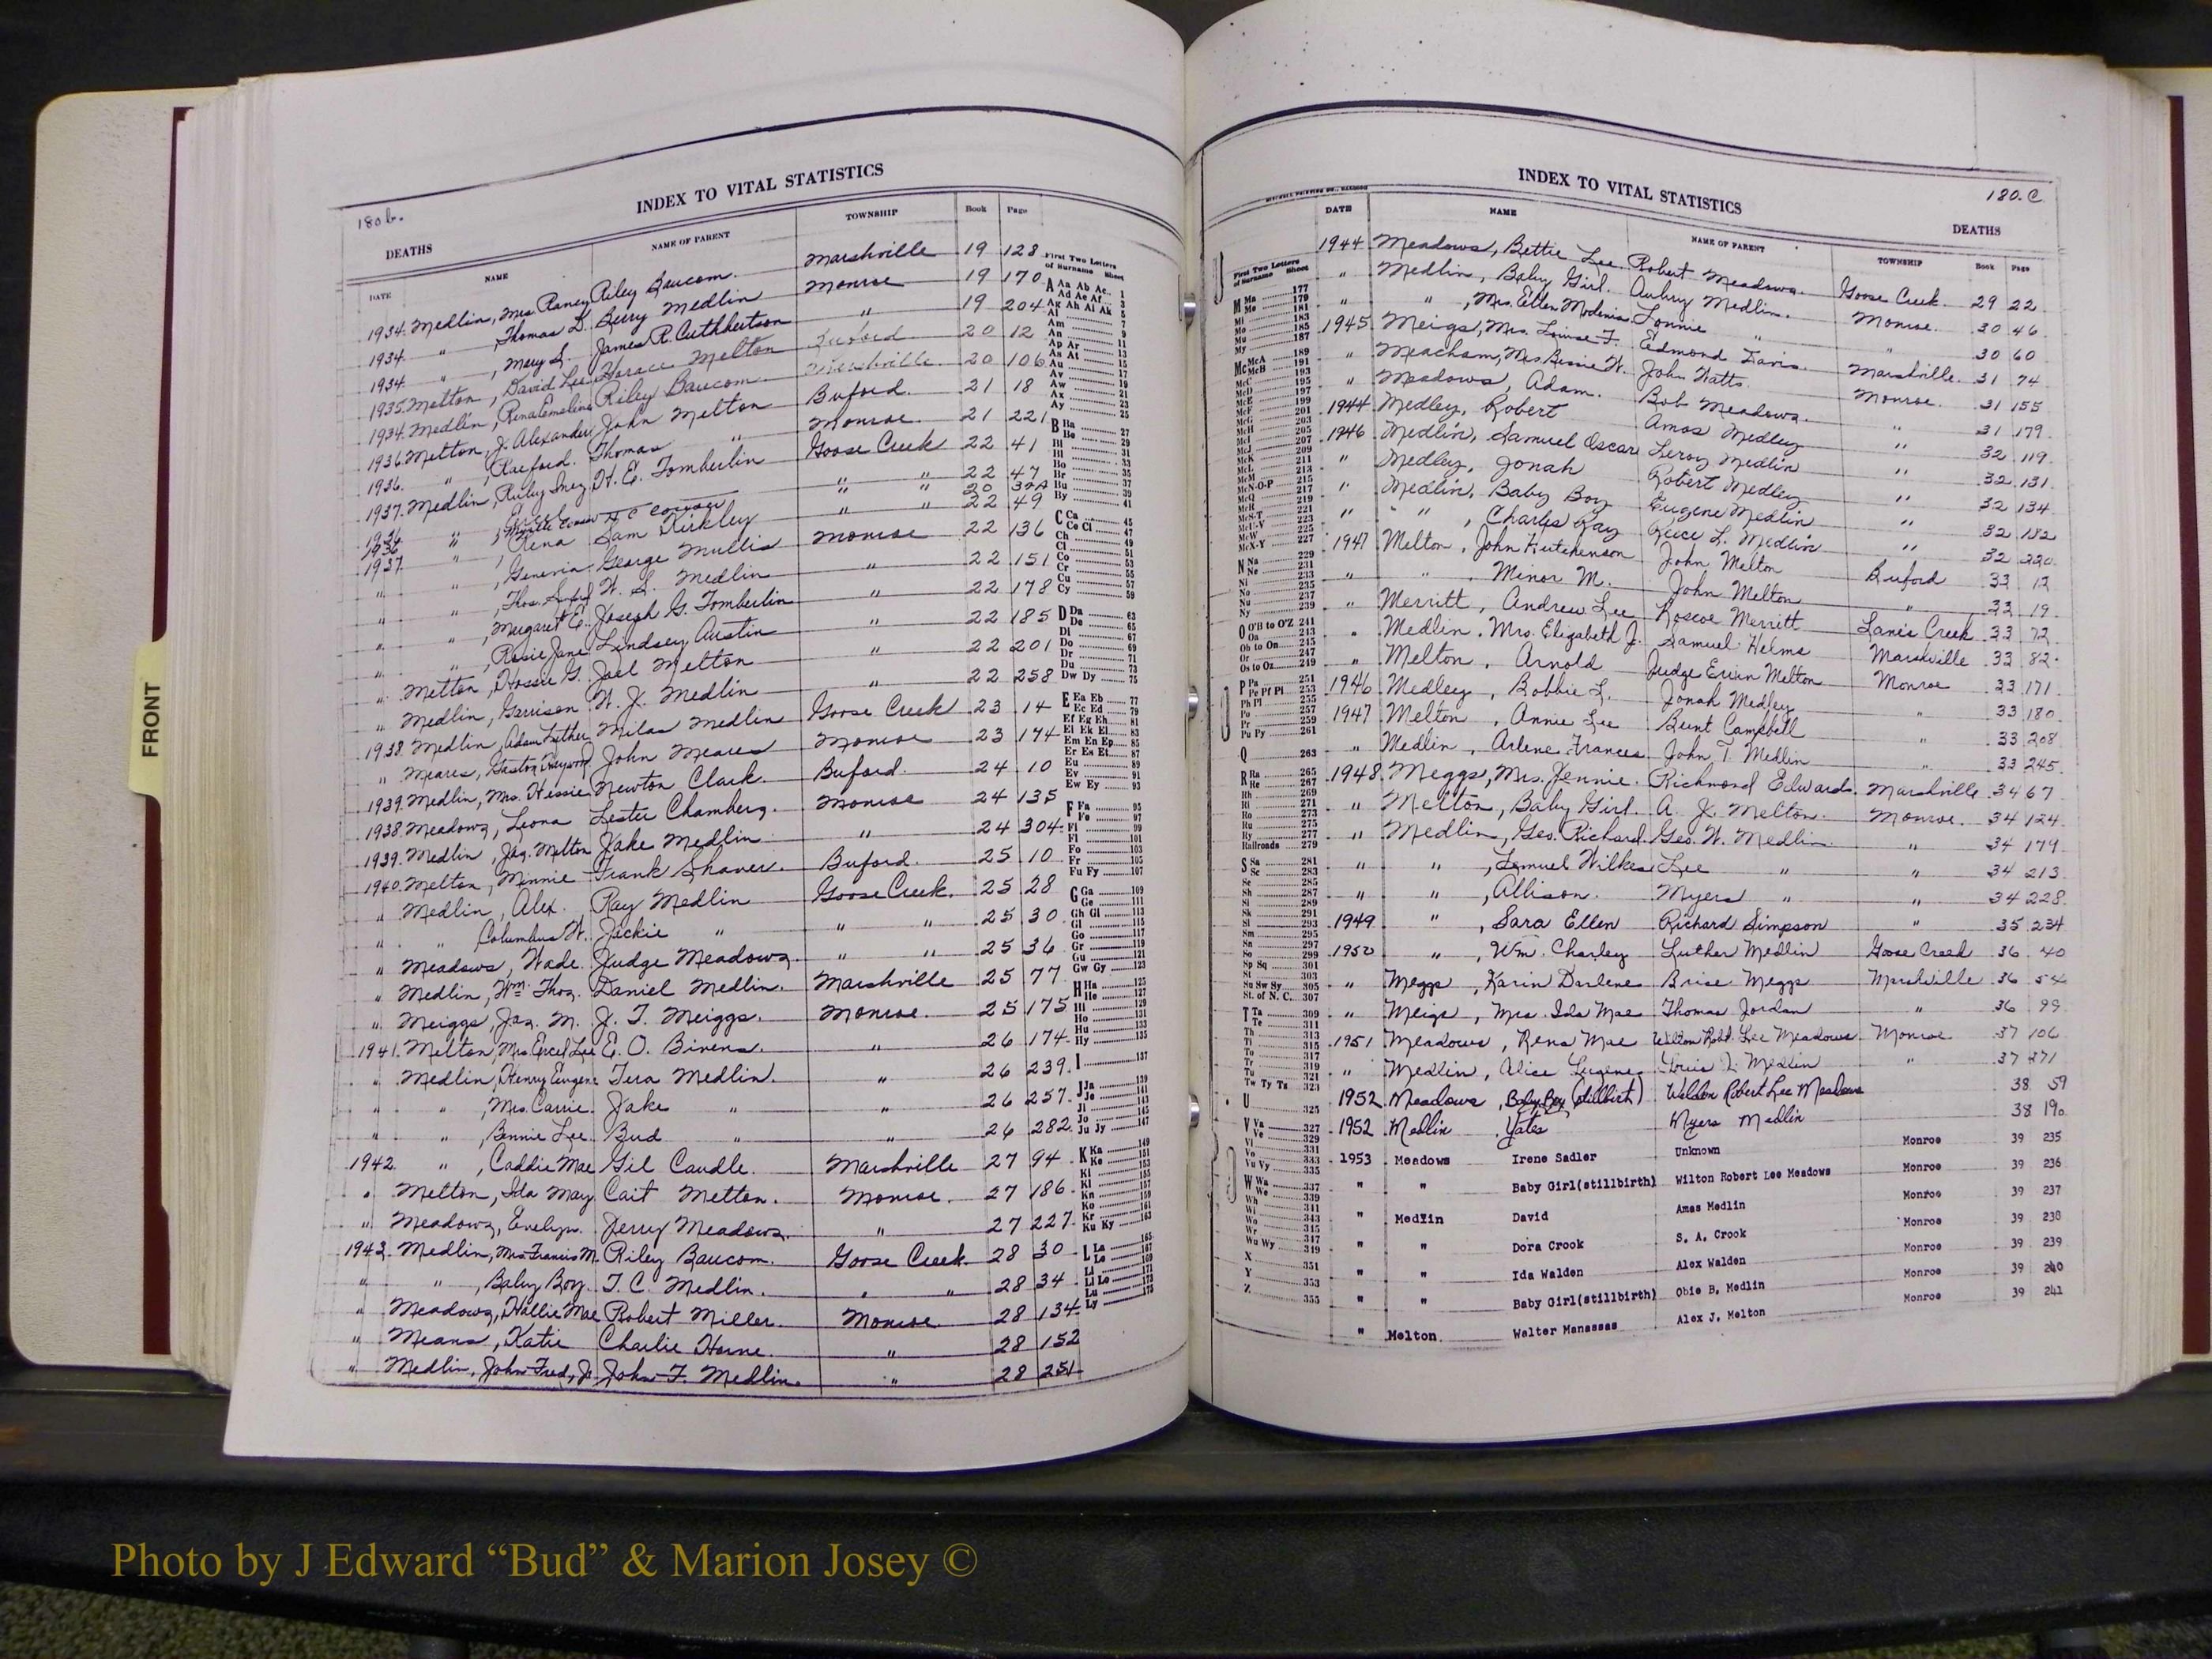 FRONT
180b.
INDEX TO VITAL STATISTICS
DEATHS
DATE NAME NAME OF PARENT TOWNSHIP Book Page
1934. Medlin, Mrs Raney Riley Baucom. Marshville 19 128
1934. " , Thomas D. Berry Medlin Monroe 19 170
1934. " , Mary L. James R. Cuthbertson " 19 204
1935. Melton, David Lee Horace Melton Buford 20 12
1934. Medlin, Rena Emeline Riley Baucom. Marshville. 20 106
1936. Melton, J. Alexander John Melton Buford. 21 18
1936. " , Raeford. Thomas " Monroe. 21 221
1937. Medlin, Ruby Inez H. E. Tomberlin Goose Creek 22 41
1934 " " " 22 47
1936 " " 20 32A
1937. " , Rena Sam Kirkley " " 22 49
" " , Genevia George Mullis Monroe 22 136
" " , Thos. W. S. Medlin " 22 151
" " , Margaret E. Joseph G. Tomberlin " 22 178
" " , Rosie Jane Lindsey Austin " 22 185
" Melton, Hossie G. Joel Melton " 22 201
" Medlin, Garrison W. J. Medlin " 22 258
1938. Medlin, Adam Luther Milas Medlin Goose Creek 23 14
" Meares, Gaston John Meares Monroe 23 174
1939. Medlin, Mrs. Hessie Newton Clark. Buford. 24 10
1938. Meadows, Leona Lester Chambers. Monroe 24 135
1939. Medlin, Jas. Milton Jake Medlin " 24 304
1940. Melton, Minnie Frank Shaver. Buford. 25 10
" Medlin, Alex. Ray Medlin Goose Creek. 25 28
" " Columbus W. Jackie " " " 25 30
" Meadows, Wade. Judge Meadows " " 25 36
" Medlin, Wm. Thos. Daniel Medlin. Marshville 25 77
" Meiggs, Jas. M. J. T. Meiggs. Monroe. 25 175
1941. Melton, Mrs. Ercel Lee E. O. Bivens. " 26 174
" Medlin, Henry Eugene Tera Medlin. " 26 239
" " , Mrs. Carrie. Jake " " 26 257
" " , Bennie Lee. Bud " " 26 282
1942. " , Caddie Mae Gil Caudle. Marshville 27 94
" Melton, Ida May. Cait Melton. Monroe. 27 186
" Meadows, Evelyn. Jerry Meadows. " 27 227
1943. Medlin, Mrs. Francis M. Riley Baucom. Goose Creek. 28 30
" " , Baby Boy. T. C. Medlin. " " 28 34
" Meadows, Hallie Mae Robert Miller. Monroe. 28 134
" Means, Katie Charlie Horne. " 28 152
" Medlin, John Fred, Jr. John F. Medlin. " 28 251
First Two Letters of Surname Sheet
A Aa Ab Ac 1
Ad Ae Af 3
Ag Ah Ai Ak 5
Al 7
Am 9
An 11
Ap Ar 13
As At 15
Au 17
Av 19
Aw 21
Ax 23
Ay 25
B Ba 27
Be 29
Bi 31
Bl 33
Bo 35
Br 37
Bu 39
By 41
C Ca 45
Ce Ci 47
Ch 49
Cl 51
Co 53
Cr 55
Cu 57
Cy 59
D Da 63
De 65
Di 67
Do 69
Dr 71
Du 73
Dw Dy 75
E Ea Eb 77
Ec Ed 79
Ef Eg Eh 81
Ei Ek El 83
Em En Ep 85
Er Es Et 87
Eu 89
Ev 91
Ew Ey 93
F Fa 95
Fe 97
Fi 99
Fl 101
Fo 103
Fr 105
Fu Fy 107
G Ga 109
Ge 111
Gh Gi 113
Gl 115
Go 117
Gr 119
Gu 121
Gw Gy 123
H Ha 125
He 127
Hi 129
Ho 131
Hu 133
Hy 135
I 137
J Ja 139
Je 141
Ji 143
Jo 145
Ju Jy 147
K Ka 149
Ke 151
Ki 153
Kl 155
Kn 157
Ko 159
Kr 161
Ku Ky 163
L La 165
Le 167
Li 169
Ll Lo 171
Lu 173
Ly 175
INDEX TO VITAL STATISTICS
180.C
DEATHS
DATE NAME NAME OF PARENT TOWNSHIP Book Page
1944 Meadows, Bettie Lee Robert Meadows. Goose Creek. 29 22
" Medlin, Baby Girl. Aubry Medlin. Monroe. 30 46
" " , Mrs. Etter Modenia. Lonnie " " 30 60
1945. Meigs, Mrs. Louise F. Edmond Davis. Marshville. 31 74
" Meacham, Mrs Bessie W. John Watts. Monroe. 31 155
" Meadows, Adam. Bob Meadows. " 31 179
1944 Medley, Robert Amos Medley " 32 119
1946 Medlin, Samuel Oscar Leroy Medlin " 32 131
" Medley, Jonah Robert Medley " 32 134
" Medlin, Baby Boy Eugene Medlin " 32 182
" " , Charles Ray Reece L. Medlin " 32 220
1947 Melton, John Hutchenson John Melton Buford 33 12
" " , Minor M. John Melton " 33 19
" Merritt, Andrew Lee Roscoe Merritt Lanes Creek 33 72
" Medlin, Mrs. Elizabeth J. Samuel Helms Marshville 33 82
" Melton, Arnold Judge Ervin Melton Monroe 33 171
1946 Medley, Bobbie L. Jonah Medley " 33 180
1947 Melton, Annie Lee Bunt Campbell " 33 208
" Medlin, Arlene Frances John T. Medlin " 33 245
1948. Meggs, Mrs. Jennie. Richmond Edwards. Marshville 34 67
" Melton, Baby Girl. A. J. Melton. Monroe. 34 124
" Medlin, Geo. Richard. Geo. W. Medlin. " 34 179
" " , Lemuel Wilkes Lee " " 34 213
" " , Allison. Myers " " 34 228
1949 " , Sara Ellen Richard Simpson " 35 234
1950 " , Wm. Charley Luther Medlin Goose Creek 36 40
" Meggs, Karin Darlene Brice Meggs Marshville 36 54
" Meigs, Mrs. Ida Mae Thomas Jordan " 36 99
1951 Meadows, Rena Mae Wilton Robt. Lee Meadows Monroe 37 106
" Medlin, Alice Eugene Louis L. Medlin " 37 271
1952 Meadows, Baby Boy (stillbirth) Weldon Robert Lee Meadows 38 59
1952 Medlin, Yates Myers Medlin 38 190
1953 Meadows Irene Sadler Unknown Monroe 39 235
" " Baby Girl(stillbirth) Wilton Robert Lee Meadows Monroe 39 236
" Medlin David Amas Medlin Monroe 39 237
" " Dora Crook S. A. Crook Monroe 39 238
" " Ida Walden Alex Walden Monroe 39 239
" " Baby Girl(stillbirth) Obie B. Medlin Monroe 39 240
" Melton Walter Manassas Alex J. Melton Monroe 39 241
First Two Letters of Surname Sheet
M Ma 177
Me 179
Mi 181
Mo 183
Mu 185
My 187
Mc McA 189
McB 191
McC 193
McD 195
McE 197
McF 199
McG 201
McH 203
McI 205
McJ 207
McK 209
McL 211
McM 213
McN-O-P 215
McQ 217
McR 219
McS-T 221
McU-V 223
McW 225
McX-Y 227
N Na 229
Ne 231
Ni 233
No 235
Nu 237
Ny 239
O O'B to O'Z 241
Oa 243
Ob to On 245
Or 247
Os to Oz 249
P Pa 251
Pe Pf Pi 253
Ph Pl 255
Po 257
Pr 259
Pu Py 261
Q 263
R Ra 265
Re 267
Rh 269
Ri 271
Ro 273
Ru 275
Ry 277
Railroads 279
S Sa 281
Sc 283
Se 285
Sh 287
Si 289
Sk 291
Sl 293
Sm 295
Sn 297
So 299
Sp Sq 301
St 303
Su Sw Sy 305
St. of N. C. 307
T Ta 309
Te 311
Th 313
Ti 315
To 317
Tr 319
Tu 321
Tw Ty Tz 323
U 325
V Va 327
Ve 329
Vi 331
Vo 333
Vu Vy 335
W Wa 337
We 339
Wh 341
Wi 343
Wo 315
Wr 317
Wu Wy 319
X 351
Y 353
Z 355
Photo by J Edward “Bud” & Marion Josey ©